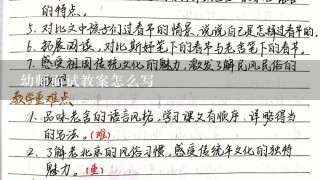 的特点。
5. 对比文中孩子们过春节的情景,说说自己是怎样过春节的。
6. 拓展阅读,对比斯妤笔下的春节与老舍笔下的春节。
7. 感受祖国传统文化的魅力,激发了解民风民俗的
幼师面试教案怎么写
教学重难点
1. 品味老舍的语言风格,学习课文有顺序、详略得当
的写法。(难)
2. 了解老北京的风俗习惯,感受传统年文化的独特
魅力。(重)